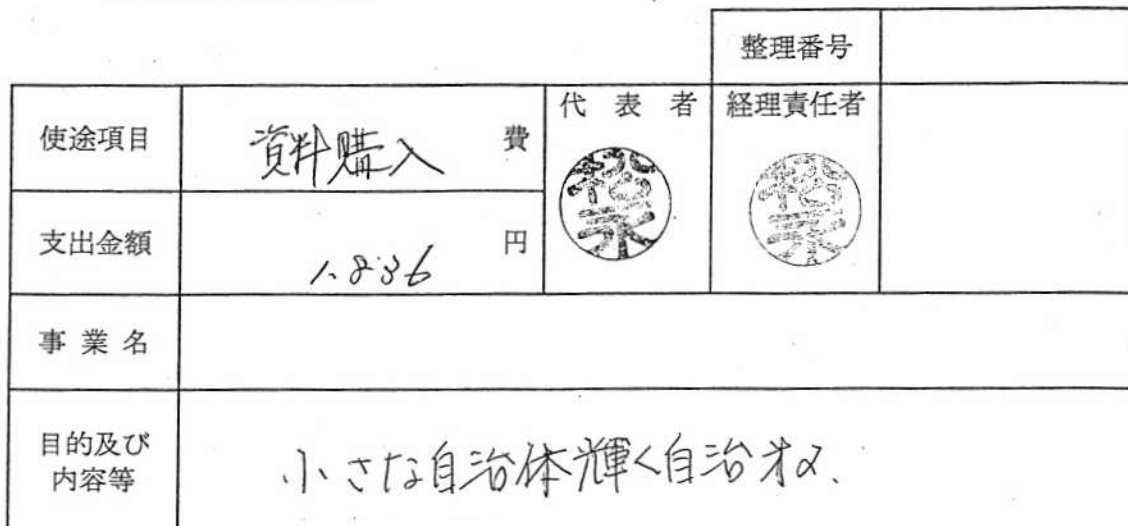 整理番号
使途項目 資料購入 費 代表者 経理責任者
支出金額 1,836 円
松永 松永
事業名
目的及び
内容等 小さな自治体輝く自治